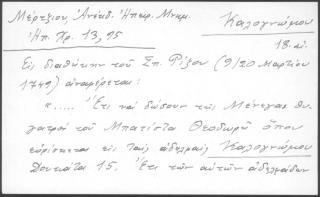 Μέρτζιου, Ἀνέκδ. Ἠπειρ. Μνημ. Καλογνώμου
Ἠπ. Χρ. 13, 95 18. αἰ.
Εἰς διαθήκην τοῦ Σπ. Ρίζου (9/20 Μαρτίου
1749) ἀναφέρεται:
"..... Ἔτι νά δώσουν τῆς Μένεγας θυ-
γατρός τοῦ Μπατίστα Θεοδωρῆ ὅπου
εὑρίσκεται εἰς ταῖς ἀδελφαῖς Καλογνώμου
Δουκάτα 15. Ἔτι τῶν αὐτῶν ἀδελφάδων